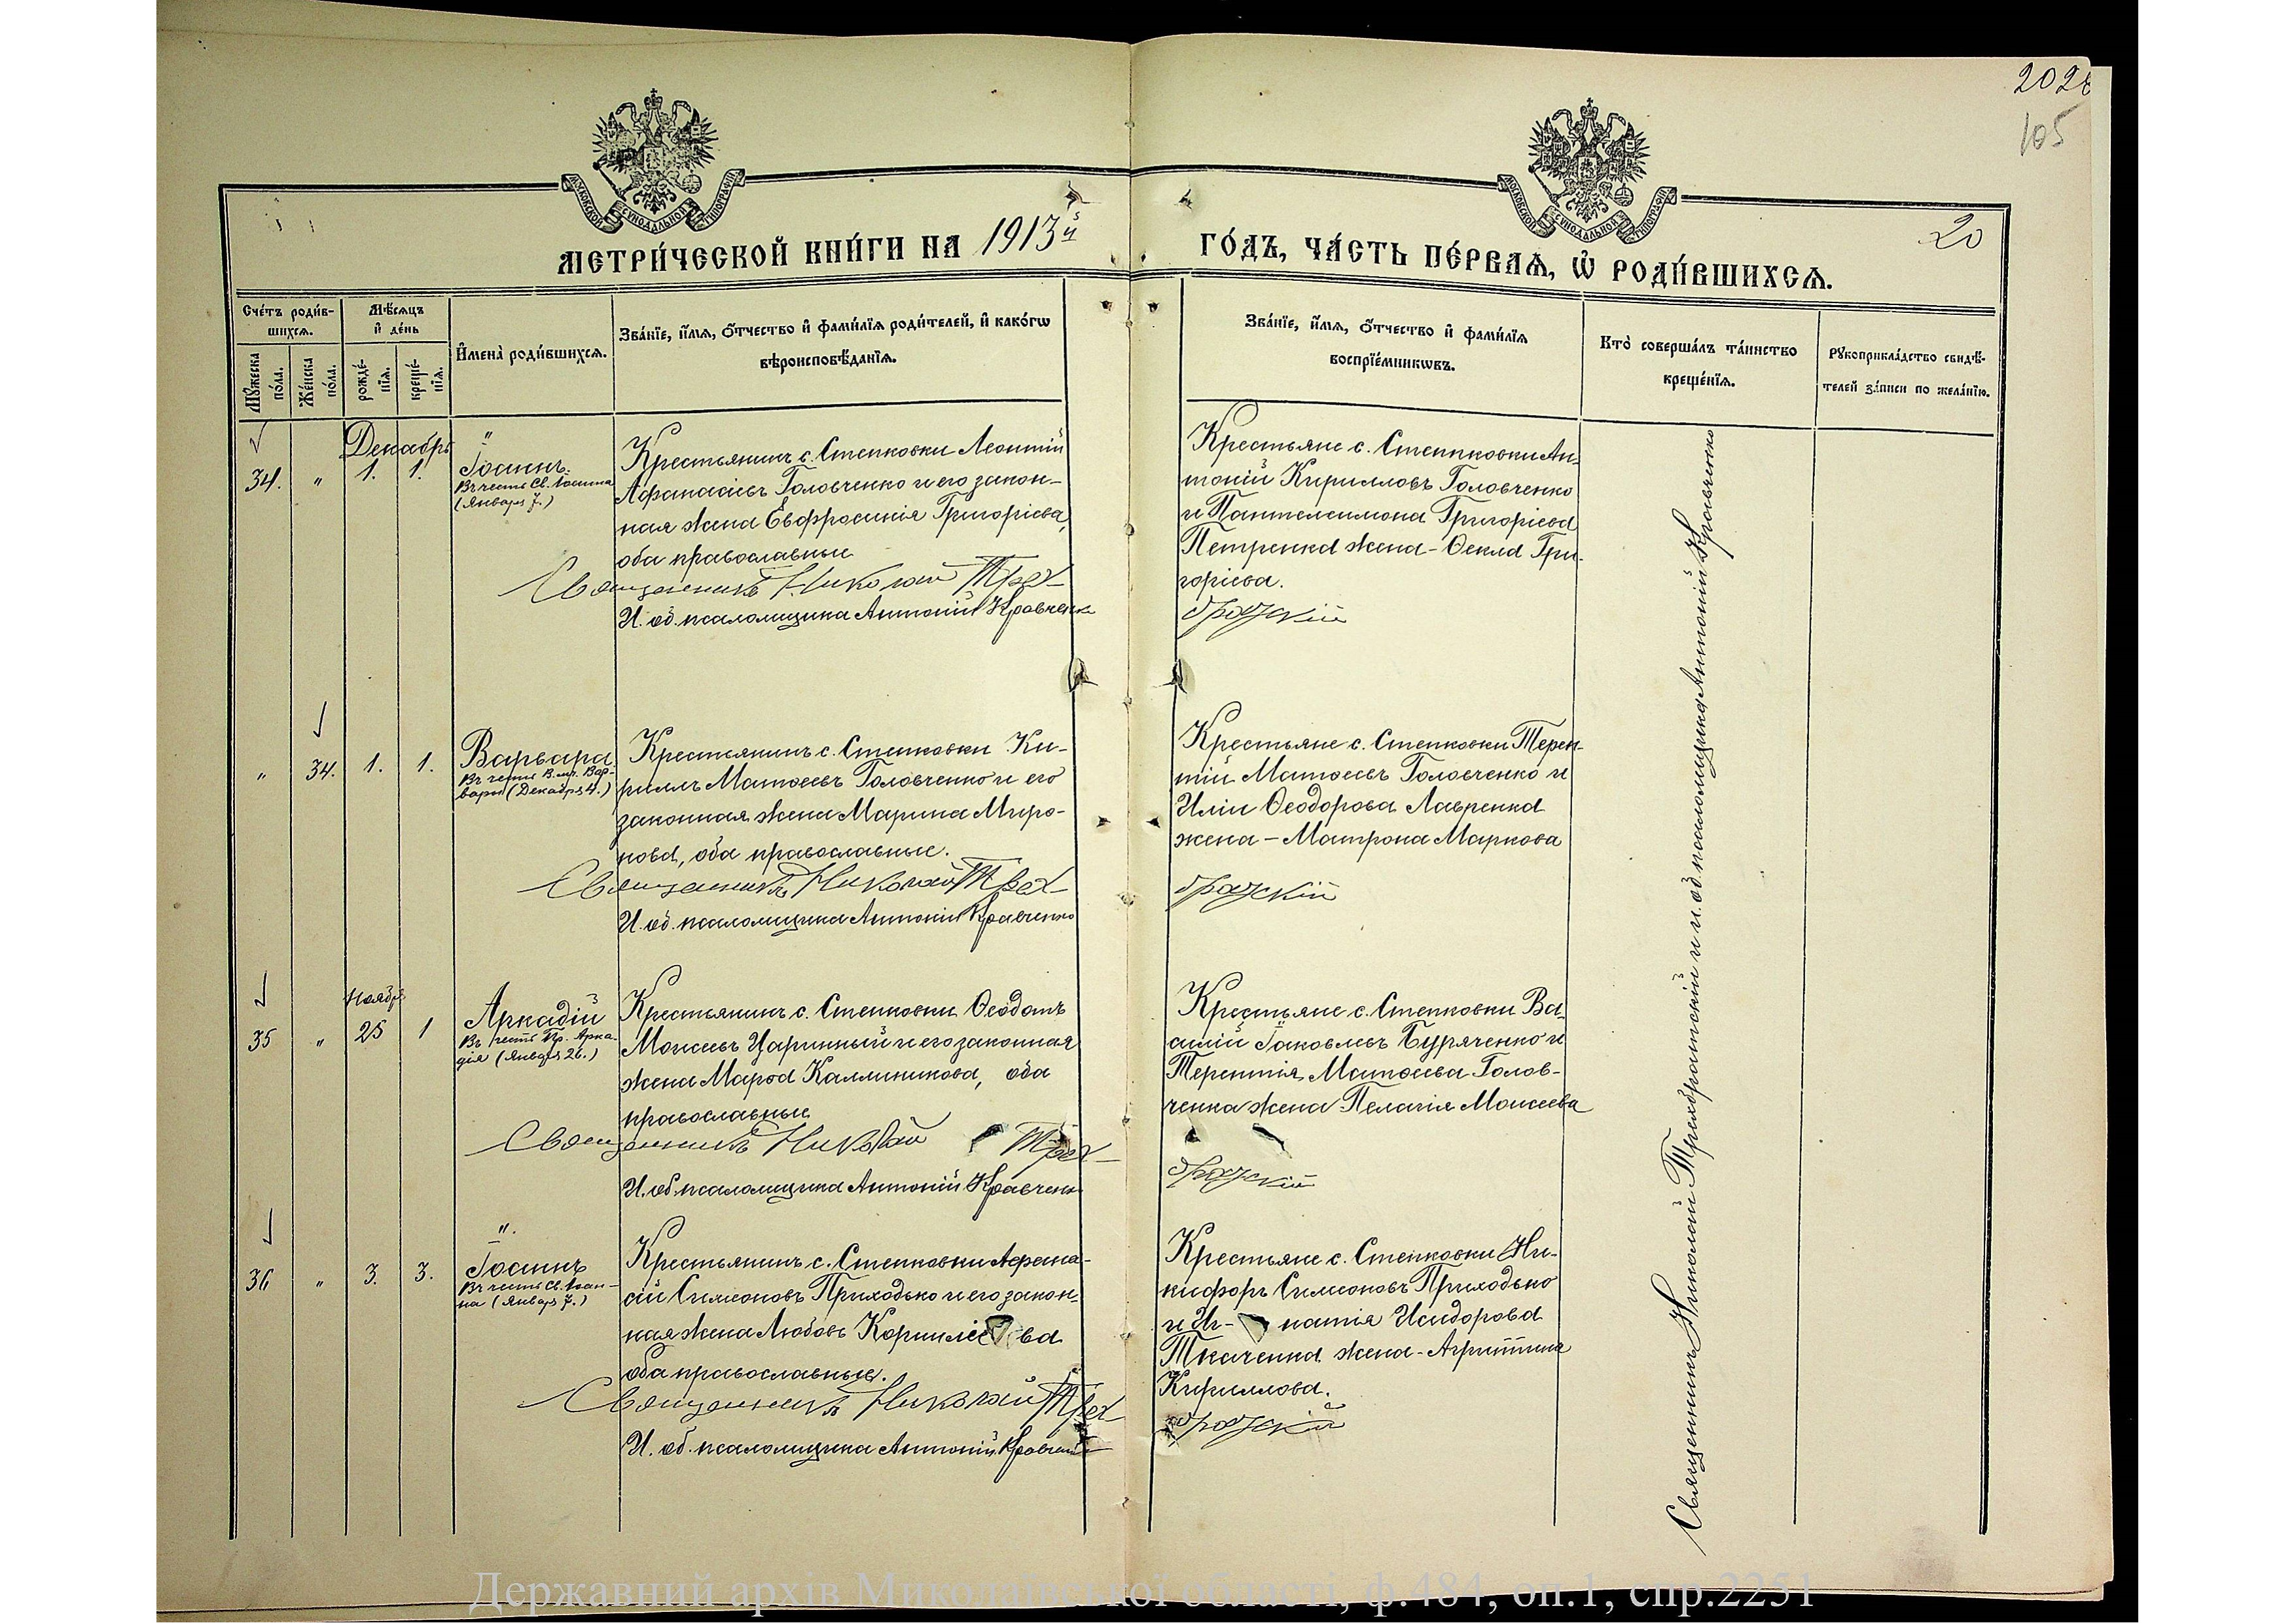 105
20
МОСКОВСКОЙ СѴНОДАЛЬНОЙ ТИПОГРАФІИ
МОСКОВСКОЙ СѴНОДАЛЬНОЙ ТИПОГРАФІИ
МЕТРИ́ЧЕСКОЙ КНИ́ГИ НА 1913й
ГО́ДЪ, ЧА́СТЬ ПЕ́РВАѦ, Ѡ РОДИ́ВШИХСѦ.
Сче́тъ роди́в-
шихсѧ.
Мѣ́сѧцъ
и де́нь
Мꙋжеска
по́ла.
Же́нска
по́ла.
рожде́-
нїѧ.
креще́-
нїѧ.
И҆мена̀ роди́вшихсѧ.
Зва́нїе, и҆́мѧ, ѻ҆́тчество и҆ фами́лїѧ роди́телей, и҆ како́гѡ
вѣроисповѣ́данїѧ.
Зва́нїе, и҆́мѧ, ѻ҆́тчество и҆ фами́лїѧ
воспрїе́мникѡвъ.
Кто̀ соверша́лъ та́инство
креще́нїѧ.
Рꙋкоприкла́дство свидѣ́-
телей за́писи по жела́нїю.
Декабрь
34. " 1. 1.
"
Іоаннъ.
Въ честь Св. Іоанна
(Января 7.)
Крестьянинъ с. Степковки Леонтій
Афанасіевъ Головченко и его закон-
ная жена Евфросинія Григоріева,
оба православные
Священникъ Николай Трех-
И. об. псаломщика Антоній Кравченк
Крестьяне с. Степковки Ан-
тоній Кирилловъ Головченко
и Пантелеимона Григоріева
Петренка жена - Ѳекла Гри-
горіева.
братскій
" 34. 1. 1.
Варвара
Въ честь В. мч. Вар-
вары (Декабря 4.)
Крестьянинъ с. Степковки Ки-
риллъ Матѳеевъ Головченко и его
законная жена Марина Миро-
нова, оба православные.
Священникъ Николай Трех-
И. об. псаломщика Антоній Кравченко
Крестьяне с. Степковки Терен-
тій Матѳеевъ Головченко и
Иліи Ѳеодорова Лавренка
жена - Матрона Маркова
братскій
Ноябр.
35 " 25 1
Аркадій
Въ честь Пр. Арка-
дія (Января 26.)
Крестьянинъ с. Степковки Ѳеодотъ
Моисеевъ Царинный и его законная
жена Марѳа Каллиникова, оба
православные
Священникъ Николай Трех-
И. об. псаломщика Антоній Кравченк
Крестьяне с. Степковки Ва-
силій Іаковлевъ Буряченко и
Терентія Матѳеева Голов-
ченка жена Пелагія Моисеева
братскій
36 " 3. 3.
".
Іоаннъ
Въ честь Св. Іоан-
на (Января 7.)
Крестьянинъ с. Степковки Афана-
сій Симеоновъ Приходько и его закон-
ная жена Любовь Корниліева
оба православные.
Священникъ Николай Трех-
И. об. псаломщика Антоній Кравченко
Крестьяне с. Степковки Ни-
кифоръ Симеоновъ Приходько
и Иг- натія Исидорова
Ткаченка жена - Агриппина
Кириллова.
братскій
Священникъ Николай Трехбратскій и и. об. псаломщика Антоній Кравченко
Державний архів Миколаївської області, ф.484, оп.1, спр.2251